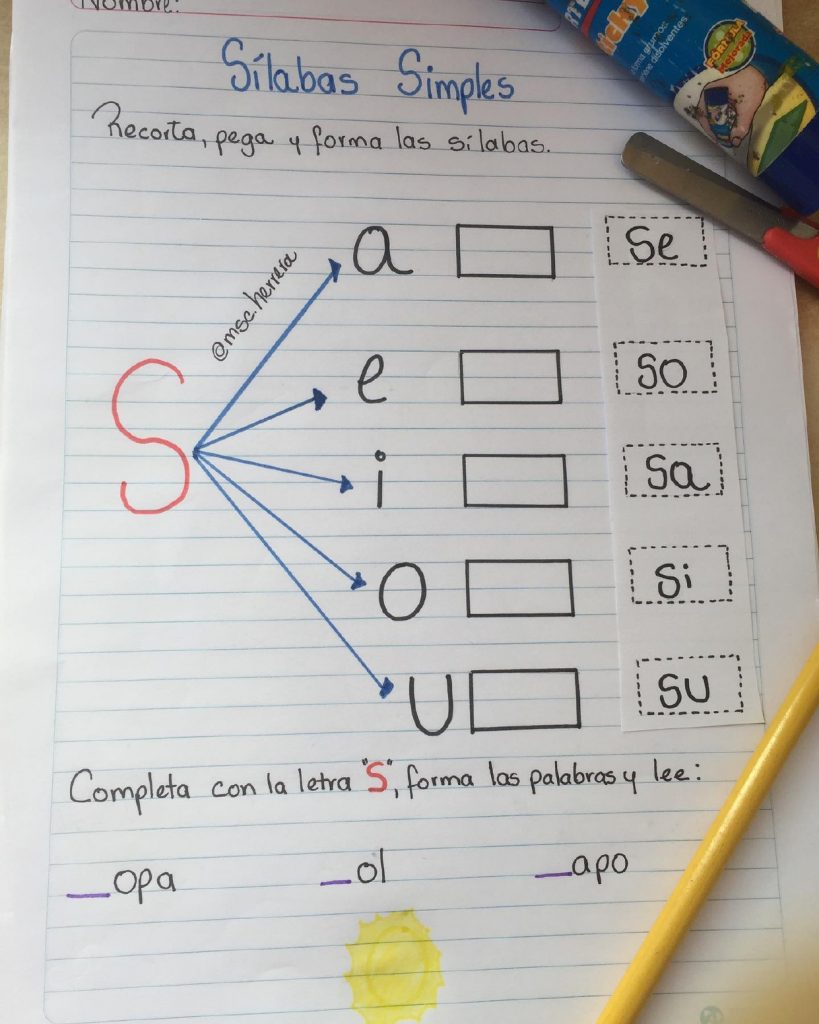 Nombre:
Sílabas Simples
Recorta, pega y forma las sílabas.
@msc.herrera
S
a
Se
e
So
i
Sa
O
Si
U
SU
Completa con la letra "S", forma las palabras y lee:
_opa _ol _apo
FÓRMULA